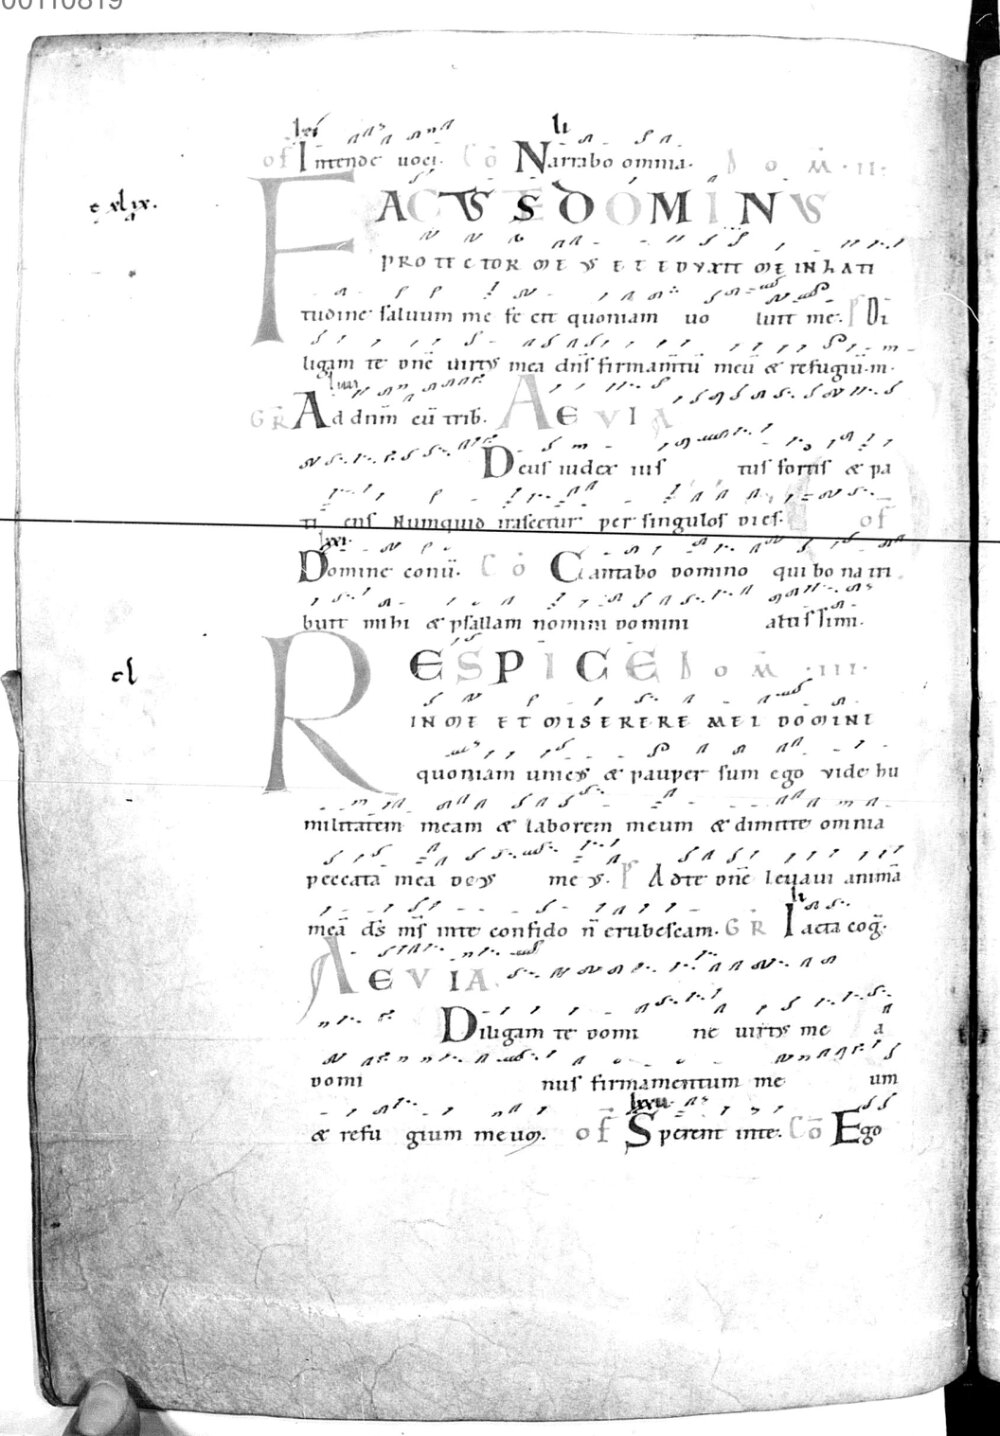 00110819
lei li
of Intende uoci. Cō Narrabo omnia. Dom̄ .II.
c xlix. FACTUS E DOMINUS
PROTECTOR MEUS ET EDUXIT ME IN LATI
tudine saluum me fecit quoniam uo luit me. Ps Di
ligam te dn̄e uirtus mea dn̄s firmam̄tū meū & refugiū m̄.
GR Ad dnm̄ cū trib. AEVIA
Deus iudex ius tus fortis & pa
ti ens Numquid irascetur per singulos dies. of
lxxi.
Domine conū. Cō Cantabo domino qui bona tri
buit mihi & psallam nomini domini altissimi.
cl RESPICE Dom̄ .III.
IN ME ET MISERERE MEI DOMINE
quoniam unicus & pauper sum ego uide hu
militatem meam & laborem meum & dimitte omnia
peccata mea deus meus. Ps Ad te dn̄e leuaui animā
meā d̄s m̄s in te confido n̄ erubescam. GR Iacta coḡ.
AEVIA
Diligam te domi ne uirtus me a
domi nus firmamentum me um
lxxii
& refu gium meum. of Sperent in te. Cō Ego